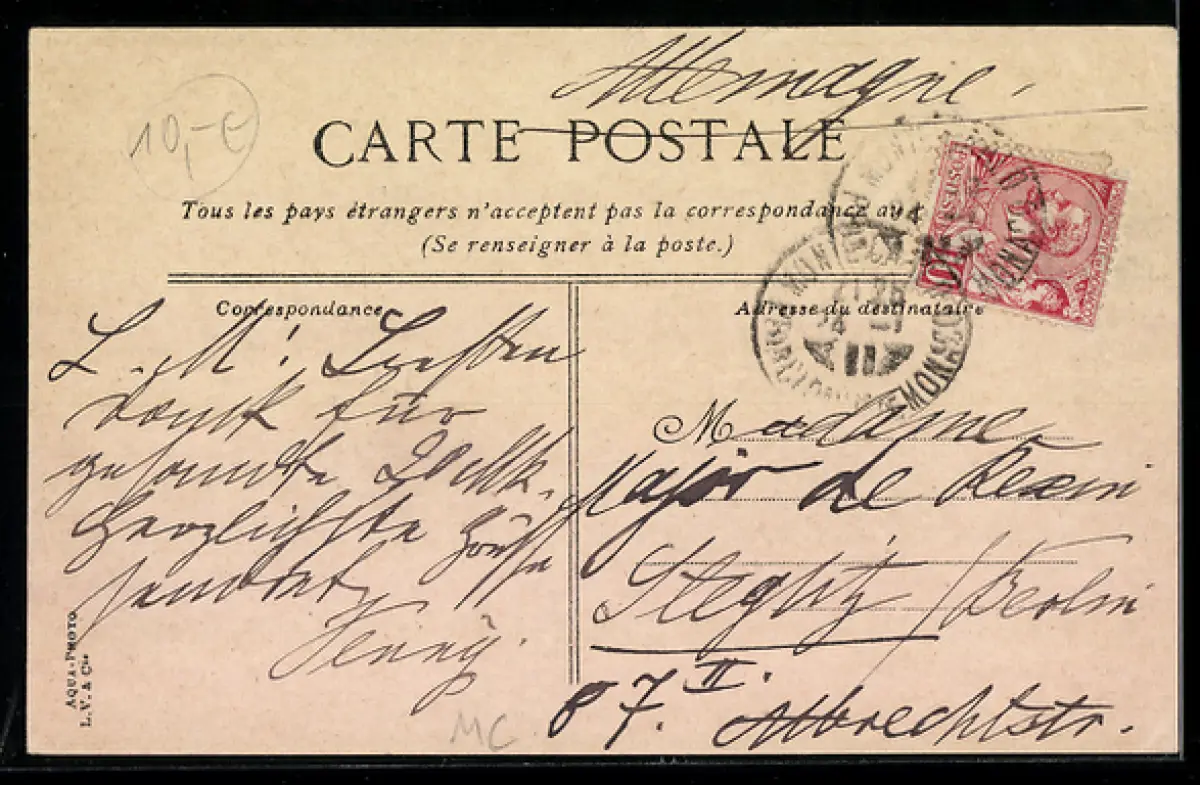 Allemagne.
10,- €
CARTE POSTALE
Tous les pays étrangers n'acceptent pas la correspondance au
(Se renseigner à la poste.)
Correspondance
L. M!
dank für
gesandte
Herzlichste Grüße
sendet
Jenny.
AQUA-PHOTO
L. V. & Cie
MC.
Adresse du destinataire
MONACO
10
Madame
Major de
Steglitz / Berlin
87. II. Albrechtstr.